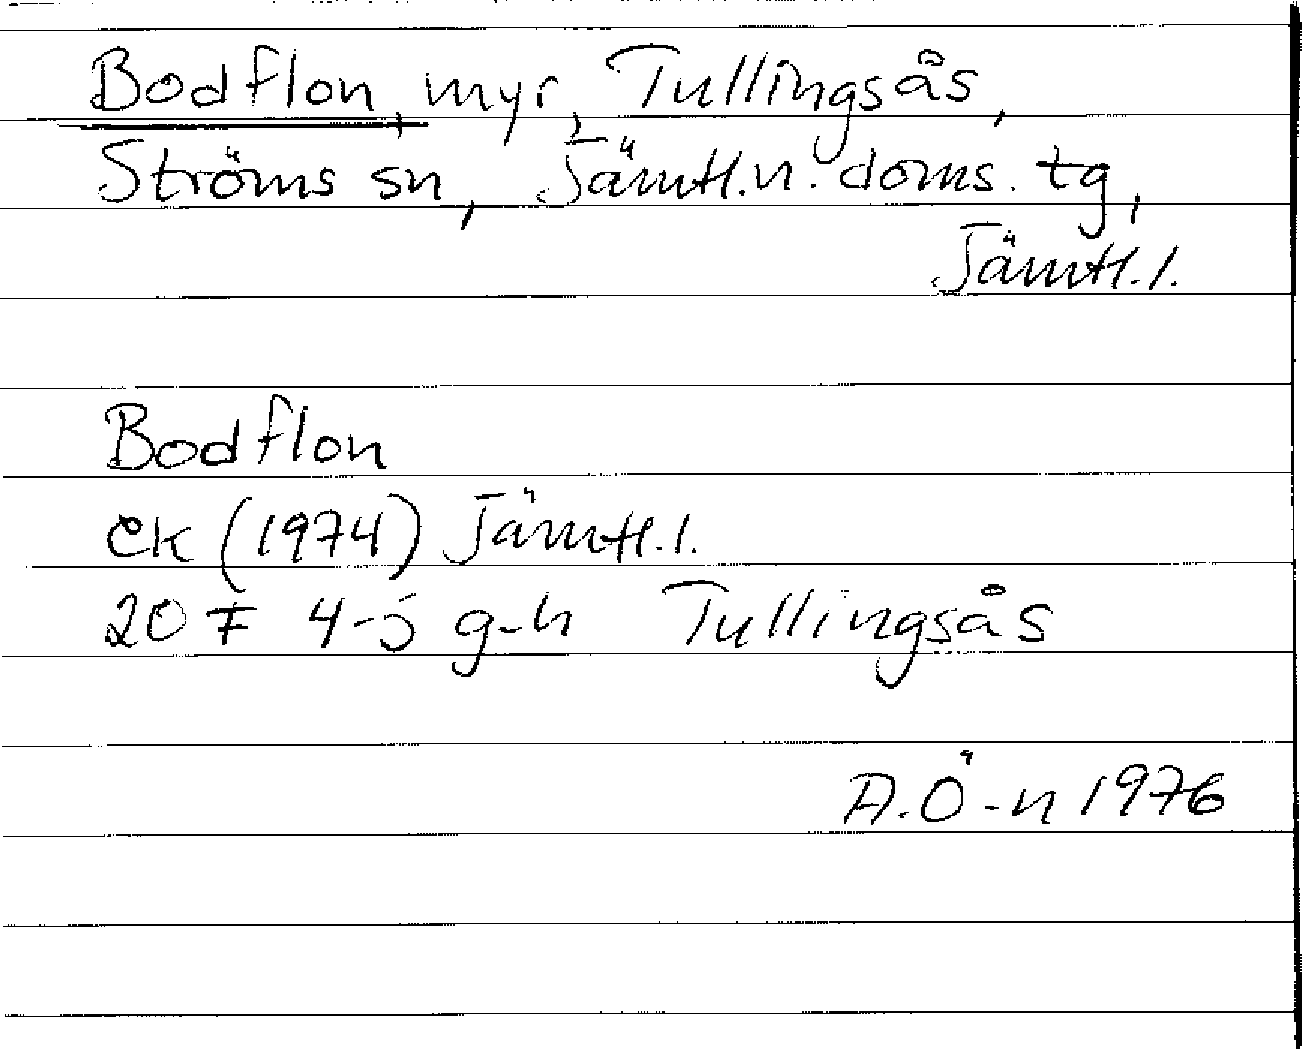 Bodflon, myr, Tullingsås,
Ströms sn, Jämtl.n. doms. tg,
Jämtl.l.
Bodflon
ek (1974) Jämtl.l.
20 F 4-5 g-h Tullingsås
A.Ö-n 1976